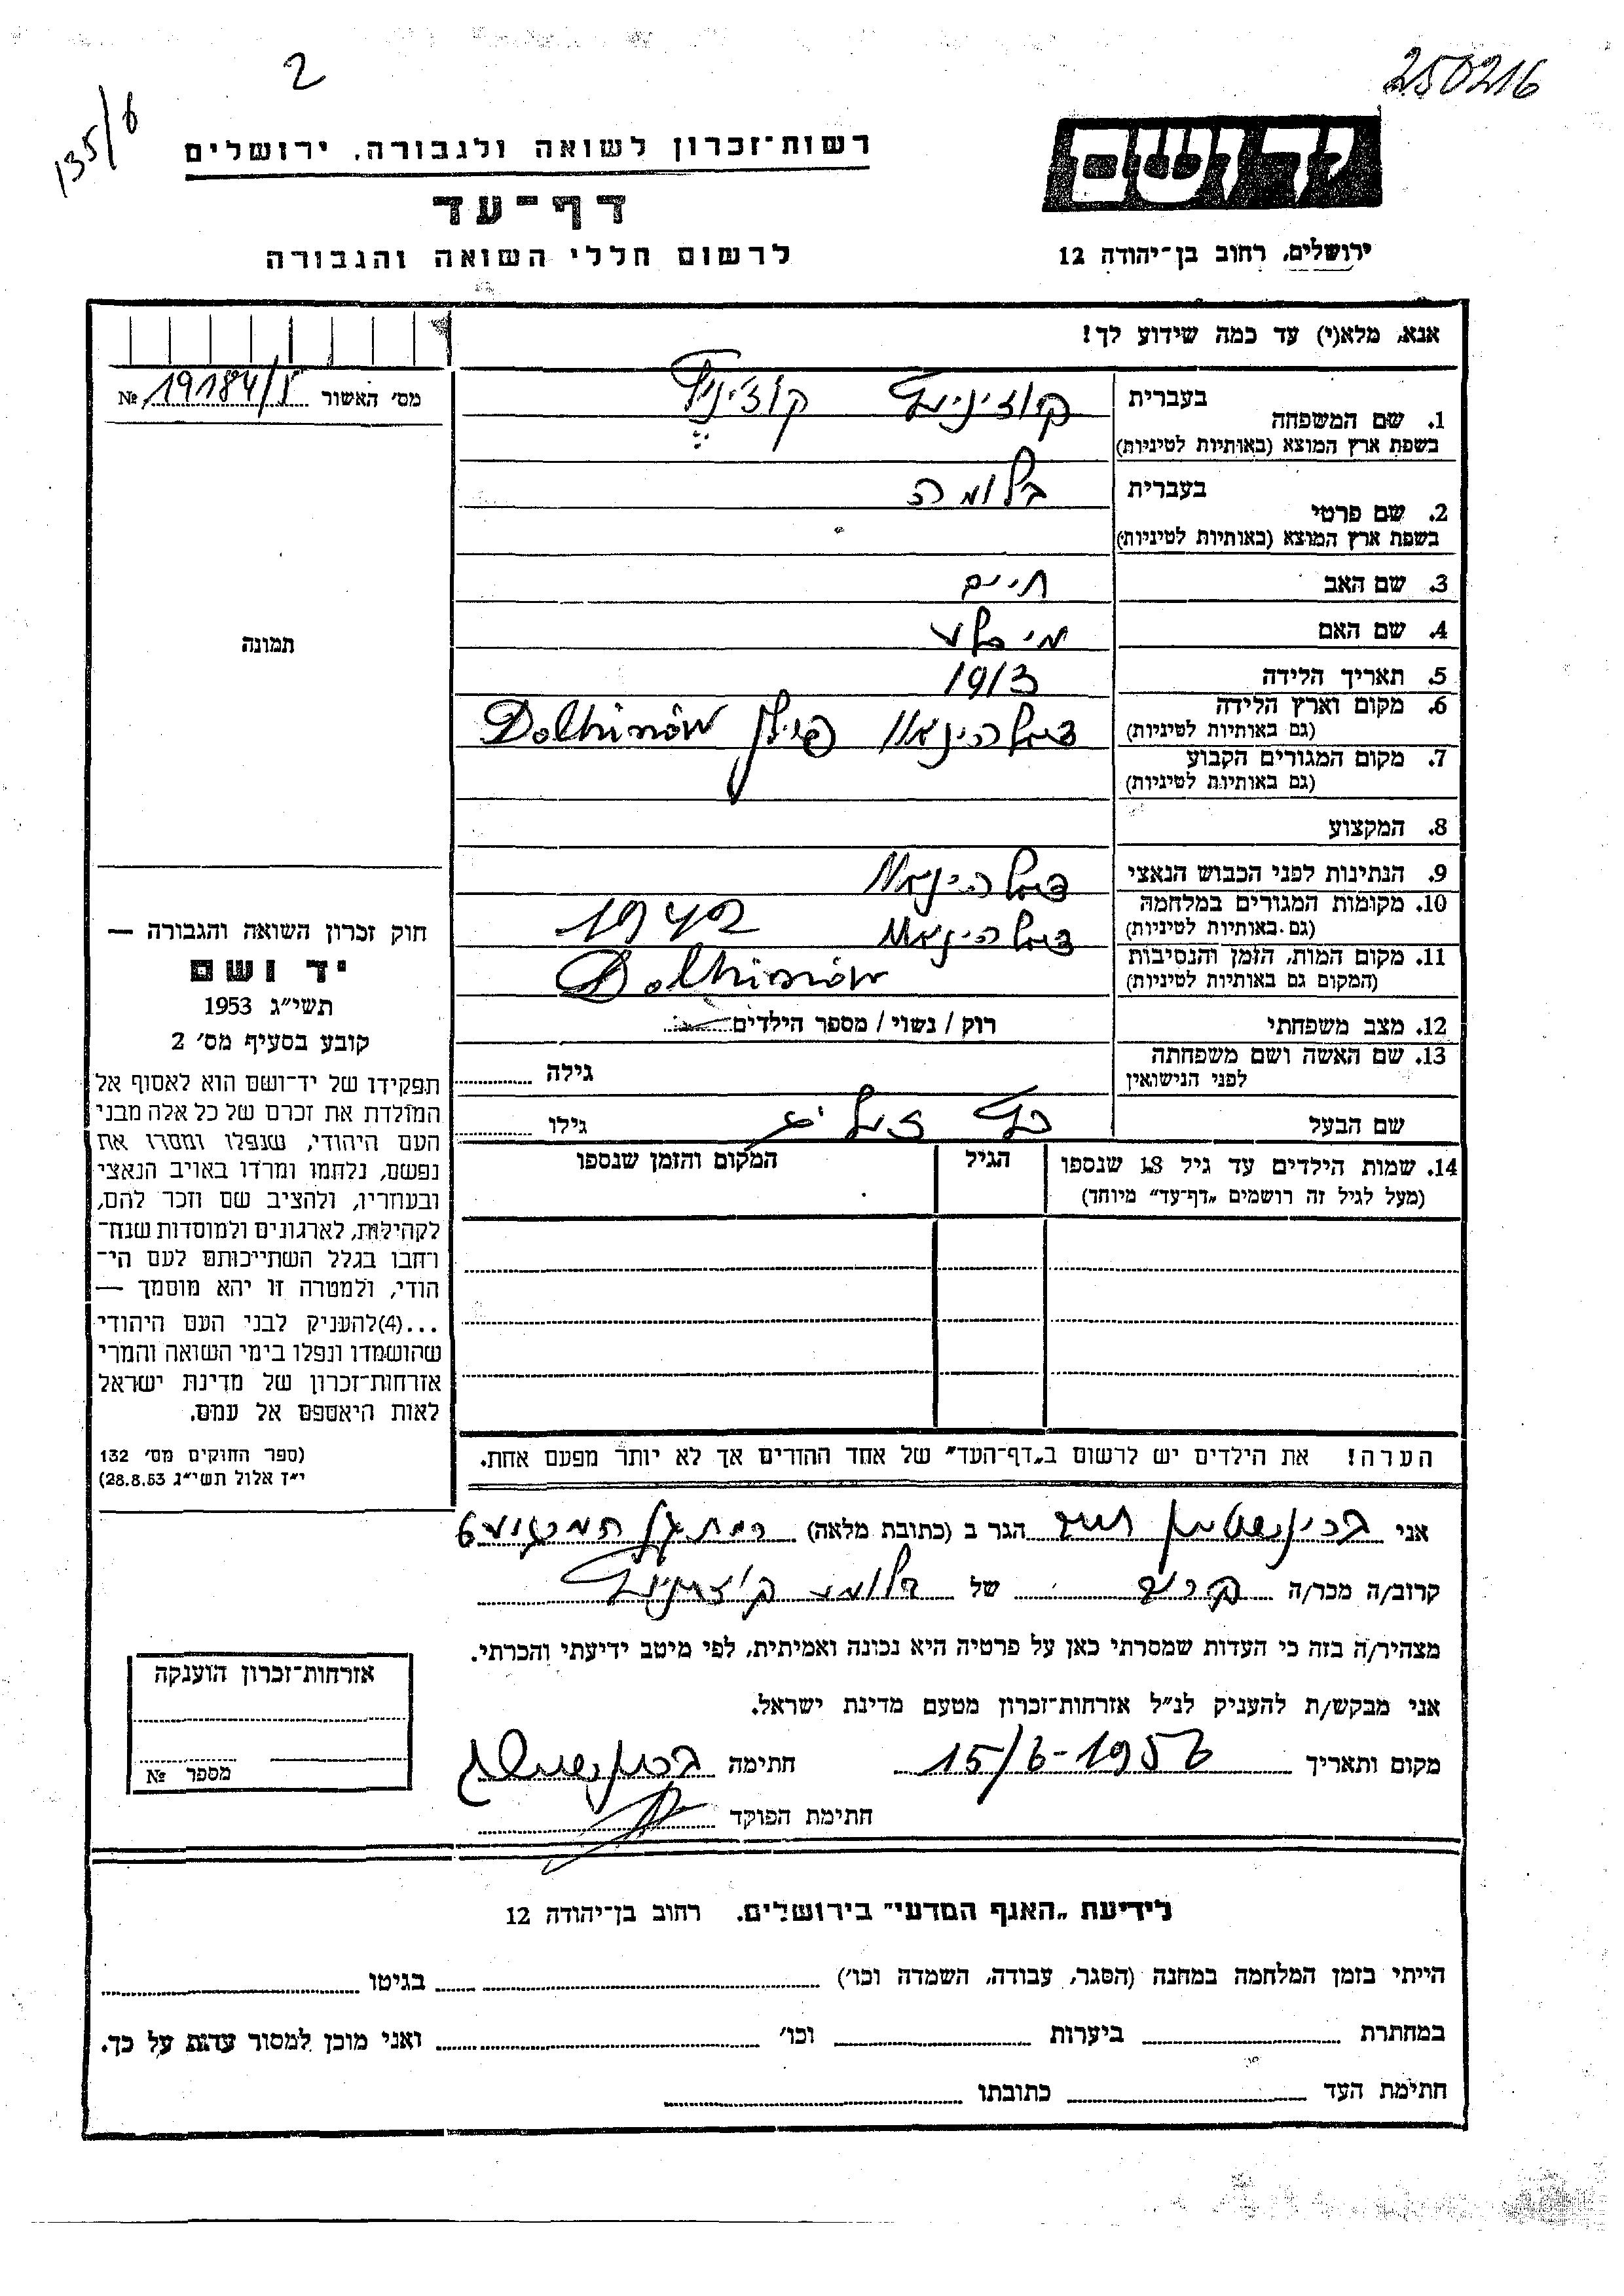 250216
2
135/6
יד ושם
רשות־זכרון לשואה ולגבורה, ירושלים
דף־עד
ירושלים, רחוב בן־יהודה 12
לרשום חללי השואה והגבורה
אנא, מלא(י) עד כמה שידוע לך!
מס׳ האשור 19184/ №
1. שם המשפחה
בעברית
בשפת ארץ המוצא (באותיות לטיניות)
2. שם פרטי
בעברית בלומה
בשפת ארץ המוצא (באותיות לטיניות)
3. שם האב חיים
4. שם האם
5. תאריך הלידה 1913
6. מקום וארץ הלידה
(גם באותיות לטיניות) פוילן Dolhinów
7. מקום המגורים הקבוע
(גם באותיות לטיניות)
8. המקצוע
9. הנתינות לפני הכבוש הנאצי
10. מקומות המגורים במלחמה
(גם באותיות לטיניות) 1942
11. מקום המות, הזמן והנסיבות
(המקום גם באותיות לטיניות) Dolhinów
12. מצב משפחתי רוק / נשוי / מספר הילדים
13. שם האשה ושם משפחתה
לפני הנישואין גילה
שם הבעל גילו
14. שמות הילדים עד גיל 18 שנספו
(מעל לגיל זה רושמים „דף־עד״ מיוחד)
הגיל
המקום והזמן שנספו
הערה! את הילדים יש לרשום ב„דף־העד״ של אחד ההורים אך לא יותר מפעם אחת.
תמונה
חוק זכרון השואה והגבורה —
יד ושם
תשי״ג 1953
קובע בסעיף מס׳ 2
תפקידו של יד־ושם הוא לאסוף אל
המולדת את זכרם של כל אלה מבני
העם היהודי, שנפלו ומסרו את
נפשם, נלחמו ומרדו באויב הנאצי
ובעוזריו, ולהציב שם וזכר להם,
לקהילות, לארגונים ולמוסדות שנח־
רחבו בגלל השתייכותם לעם הי־
הודי, ולמטרה זו יהא מוסמך —
...(4)להעניק לבני העם היהודי
שהושמדו ונפלו בימי השואה והמרי
אזרחות־זכרון של מדינת ישראל
לאות היאספם אל עמם.
(ספר החוקים מס׳ 132
י״ז אלול תשי״ג 28.8.53)
אני הגר ב (כתובת מלאה)
קרוב/ה מכר/ה של
מצהיר/ה בזה כי העדות שמסרתי כאן על פרטיה היא נכונה ואמיתית, לפי מיטב ידיעתי והכרתי.
אני מבקש/ת להעניק לנ״ל אזרחות־זכרון מטעם מדינת ישראל.
מקום ותאריך 15/6-1956 חתימה
חתימת הפוקד
אזרחות־זכרון הוענקה
מספר №
לידיעת „האגף המדעי״ בירושלים. רחוב בן־יהודה 12
הייתי בזמן המלחמה במחנה (הסגר, עבודה, השמדה וכו׳) בגיטו
במחתרת ביערות וכו׳ ואני מוכן למסור עדות על כך.
חתימת העד כתובתו